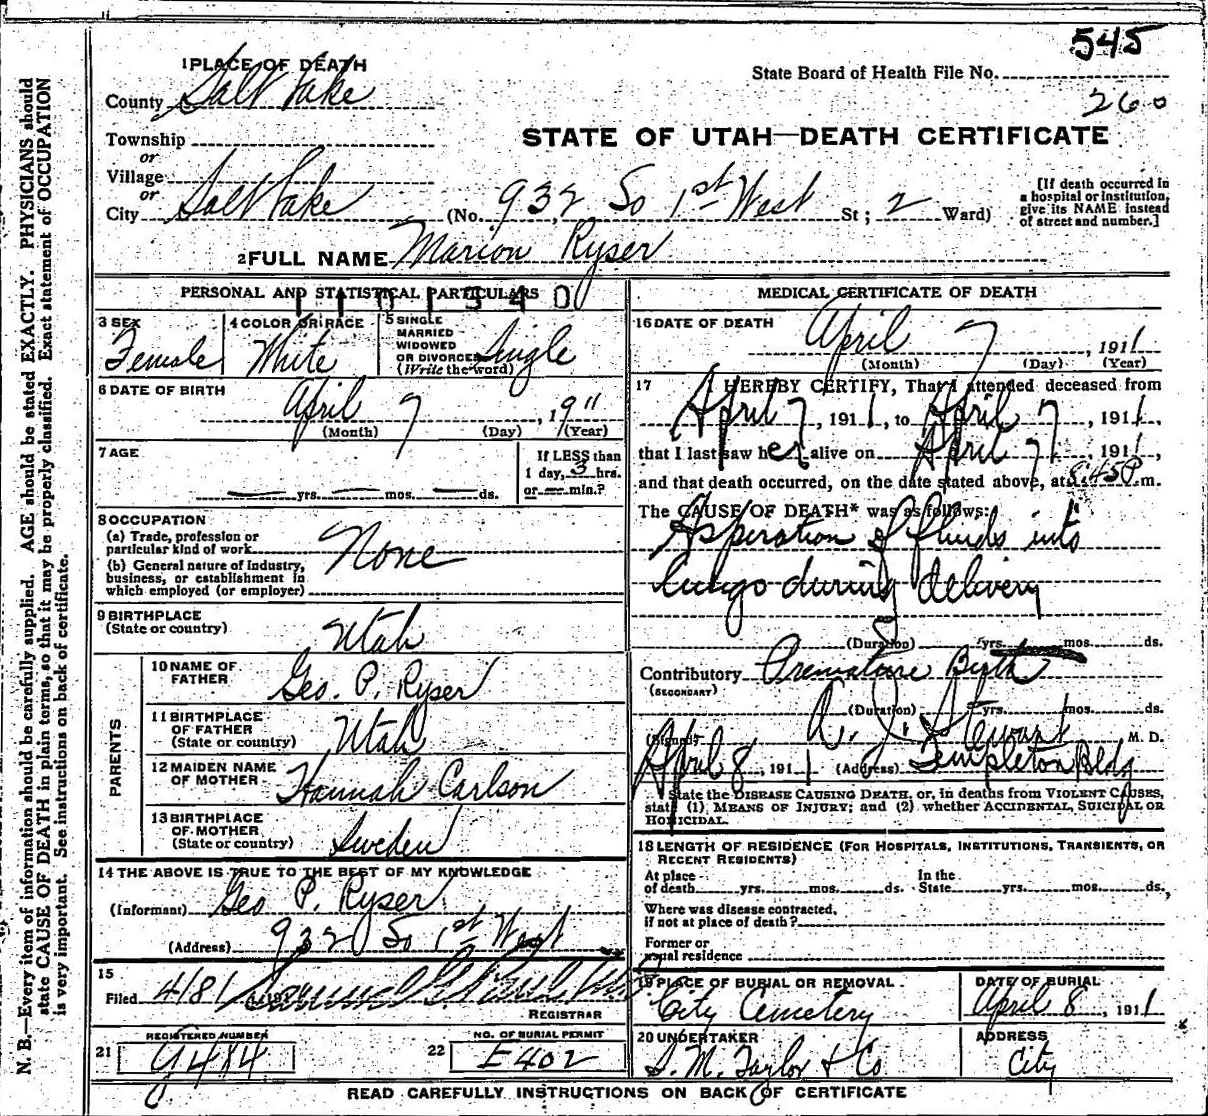 545
1 PLACE OF DEATH
State Board of Health File No.
County Salt Lake
260
STATE OF UTAH—DEATH CERTIFICATE
Township
or
Village
or
City Salt Lake (No. 932 So 1st West St; 2 Ward)
[If death occurred in a hospital or institution, give its NAME instead of street and number.]
2 FULL NAME Marion Ryser
PERSONAL AND STATISTICAL PARTICULARS
3 SEX Female
4 COLOR OR RACE White
5 SINGLE MARRIED WIDOWED OR DIVORCED (Write the word) Single
6 DATE OF BIRTH
April 7, 1911
(Month) (Day) (Year)
7 AGE
If LESS than
1 day, 3 hrs.
— yrs. — mos. — ds. or — min.?
8 OCCUPATION
(a) Trade, profession or
particular kind of work None
(b) General nature of Industry,
business, or establishment in
which employed (or employer)
9 BIRTHPLACE
(State or country) Utah
PARENTS
10 NAME OF
FATHER Geo. P. Ryser
11 BIRTHPLACE
OF FATHER
(State or country) Utah
12 MAIDEN NAME
OF MOTHER Hannah Carlson
13 BIRTHPLACE
OF MOTHER
(State or country) Sweden
14 THE ABOVE IS TRUE TO THE BEST OF MY KNOWLEDGE
(Informant) Geo P. Ryser
(Address) 932 So 1st West
15
Filed 4/8/
REGISTRAR
REGISTERED NUMBER
21
NO. OF BURIAL PERMIT
22 E402
MEDICAL CERTIFICATE OF DEATH
16 DATE OF DEATH
April 7, 1911
(Month) (Day) (Year)
17 I HEREBY CERTIFY, That I attended deceased from
April 7, 1911, to April 7, 1911,
that I last saw her alive on April 7, 1911,
and that death occurred, on the date stated above, at 8.45 P.m.
The CAUSE OF DEATH* was as follows:
Aspiration of fluids into
lungs during delivery
(Duration) yrs. mos. ds.
Contributory Premature Birth
(SECONDARY)
(Duration) yrs. mos. ds.
(Signed) Stewart M. D.
April 8, 1911 (Address) Templeton Bldg
* State the DISEASE CAUSING DEATH, or, in deaths from VIOLENT CAUSES,
state (1) MEANS OF INJURY; and (2) whether ACCIDENTAL, SUICIDAL OR
HOMICIDAL.
18 LENGTH OF RESIDENCE (FOR HOSPITALS, INSTITUTIONS, TRANSIENTS, OR
RECENT RESIDENTS)
At place In the
of death yrs. mos. ds. State yrs. mos. ds.,
Where was disease contracted,
if not at place of death?
Former or
usual residence
19 PLACE OF BURIAL OR REMOVAL
City Cemetery
DATE OF BURIAL
April 8, 1911
20 UNDERTAKER
S. M. Taylor & Co
ADDRESS
City
READ CAREFULLY INSTRUCTIONS ON BACK OF CERTIFICATE
N. B.—Every item of information should be carefully supplied. AGE should be stated EXACTLY. PHYSICIANS should
state CAUSE OF DEATH in plain terms, so that it may be properly classified. Exact statement of OCCUPATION
is very important. See instructions on back of certificate.